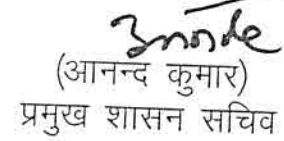 (आनन्द कुमार)
प्रमुख शासन सचिव